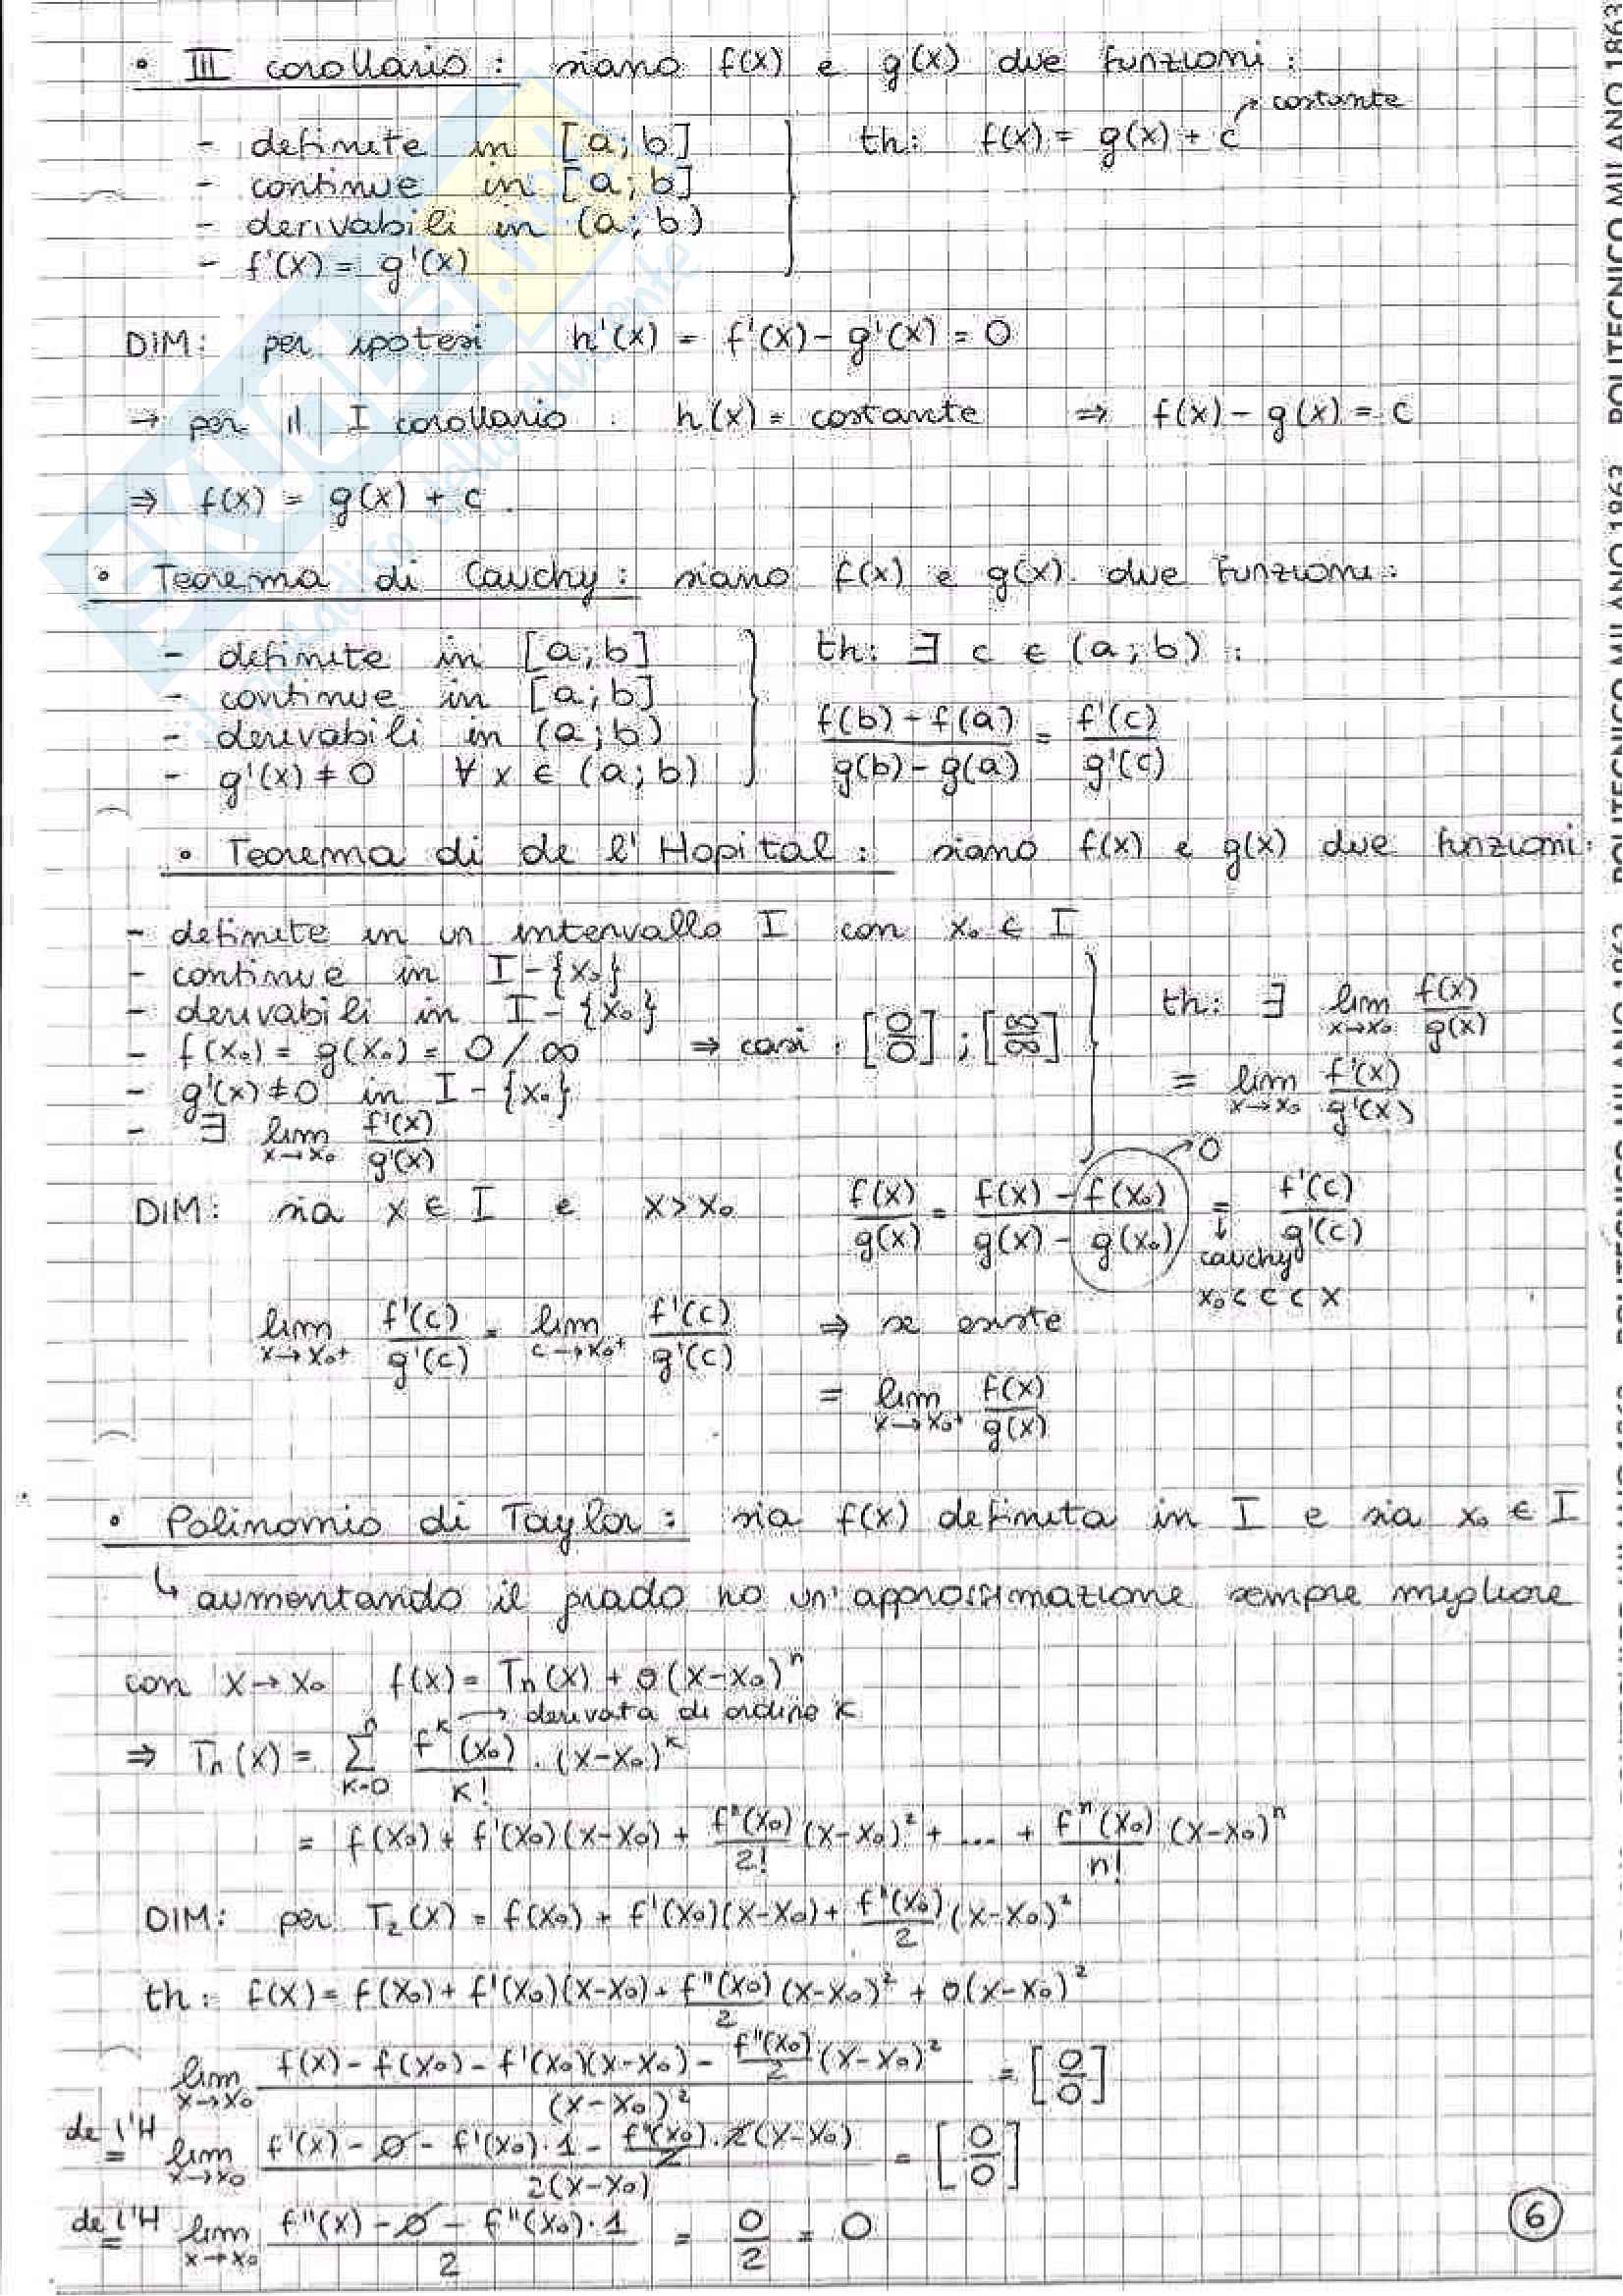 • III corollario : siano f(x) e g(x) due funzioni :
- definite in [a; b]
- continue in [a; b]
- derivabili in (a; b)
- f'(x) = g'(x)
th: f(x) = g(x) + c → costante
DIM: per ipotesi h'(x) = f'(x) - g'(x) = 0
→ per il I corollario : h(x) = costante ⇒ f(x) - g(x) = c
⇒ f(x) = g(x) + c .
• Teorema di Cauchy : siano f(x) e g(x) due funzioni :
- definite in [a; b]
- continue in [a; b]
- derivabili in (a; b)
- g'(x) ≠ 0 ∀ x ∈ (a; b)
th: ∃ c ∈ (a; b) :
(f(b) - f(a))/(g(b) - g(a)) = f'(c)/g'(c)
• Teorema di de l'Hopital : siano f(x) e g(x) due funzioni:
- definite in un intervallo I con x₀ ∈ I
- continue in I - {x₀}
- derivabili in I - {x₀}
- f(x₀) = g(x₀) = 0 / ∞ ⇒ casi : [0/0] ; [∞/∞]
- g'(x) ≠ 0 in I - {x₀}
- ∃ lim x→x₀ f'(x)/g'(x)
th: ∃ lim x→x₀ f(x)/g(x)
= lim x→x₀ f'(x)/g'(x)
DIM: sia x ∈ I e x > x₀ f(x)/g(x) = (f(x) - f(x₀))/(g(x) - g(x₀)) → 0 = f'(c)/g'(c)
↓ cauchy
x₀ < c < x
lim x→x₀⁺ f'(c)/g'(c) = lim c→x₀⁺ f'(c)/g'(c) ⇒ se esiste
= lim x→x₀⁺ f(x)/g(x)
• Polinomio di Taylor : sia f(x) definita in I e sia x₀ ∈ I
↳ aumentando il grado ho un'approssimazione sempre migliore
con x→x₀ f(x) = Tₙ(x) + o(x-x₀)ⁿ
→ derivata di ordine k
⇒ Tₙ(x) = ∑ k=0 n fᵏ(x₀)/k! · (x-x₀)ᵏ
= f(x₀) + f'(x₀)(x-x₀) + f''(x₀)/2! (x-x₀)² + .... + fⁿ(x₀)/n! (x-x₀)ⁿ
DIM: per T₂(x) = f(x₀) + f'(x₀)(x-x₀) + f''(x₀)/2 (x-x₀)²
th: f(x) = f(x₀) + f'(x₀)(x-x₀) + f''(x₀)/2 (x-x₀)² + o(x-x₀)²
lim x→x₀ (f(x) - f(x₀) - f'(x₀)(x-x₀) - f''(x₀)/2 (x-x₀)²)/(x-x₀)² = [0/0]
de l'H = lim x→x₀ (f'(x) - 0 - f'(x₀)·1 - f''(x₀)/2 · 2(x-x₀))/2(x-x₀) = [0/0]
de l'H = lim x→x₀ (f''(x) - 0 - f''(x₀)·1)/2 = 0/2 = 0
6
POLITECNICO MILANO 1863
POLITECNICO MILANO 1863